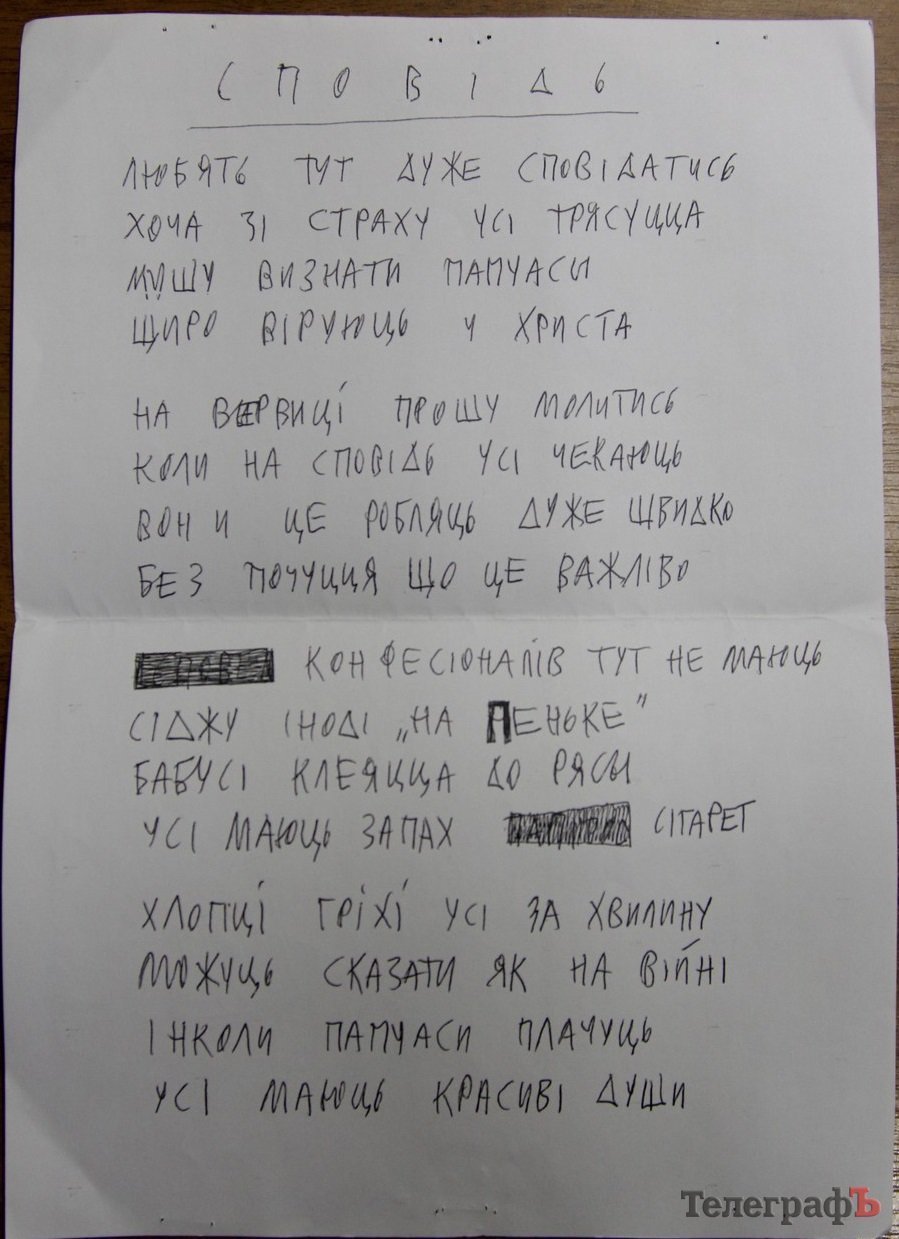 СПОВІДЬ
ЛЮБЯТЬ ТУТ ДУЖЕ СПОВІДАТИСЬ
ХОЧА ЗІ СТРАХУ УСІ ТРЯСУЦЦА
МУШУ ВИЗНАТИ ПАПУАСЫ
ЩИРО ВІРУЮЦЬ У ХРИСТА
НА ВЕРВИЦІ ПРОШУ МОЛИТИСЬ
КОЛИ НА СПОВІДЬ УСІ ЧЕКАЮЦЬ
ВОНИ ЦЕ РОБЛЯЦЬ ДУЖЕ ШВИДКО
БЕЗ ПОЧУЦЦЯ ЩО ЦЕ ВАЖЛІВО
КОНФЕСІОНАЛІВ ТУТ НЕ МАЮЦЬ
СІДЖУ ІНОДІ „НА ПЕНЬКЕ"
БАБУСІ КЛЕЯЦЦА ДО РЯСЫ
УСІ МАЮЦЬ ЗАПАХ СІГАРЕТ
ХЛОПЦІ ГРІХІ УСІ ЗА ХВИЛИНУ
МОЖУЦЬ СКАЗАТИ ЯК НА ВІЙНІ
ІНКОЛИ ПАПУАСИ ПЛАЧУЦЬ
УСІ МАЮЦЬ КРАСИВІ ДУШИ
ТелеграфЪ